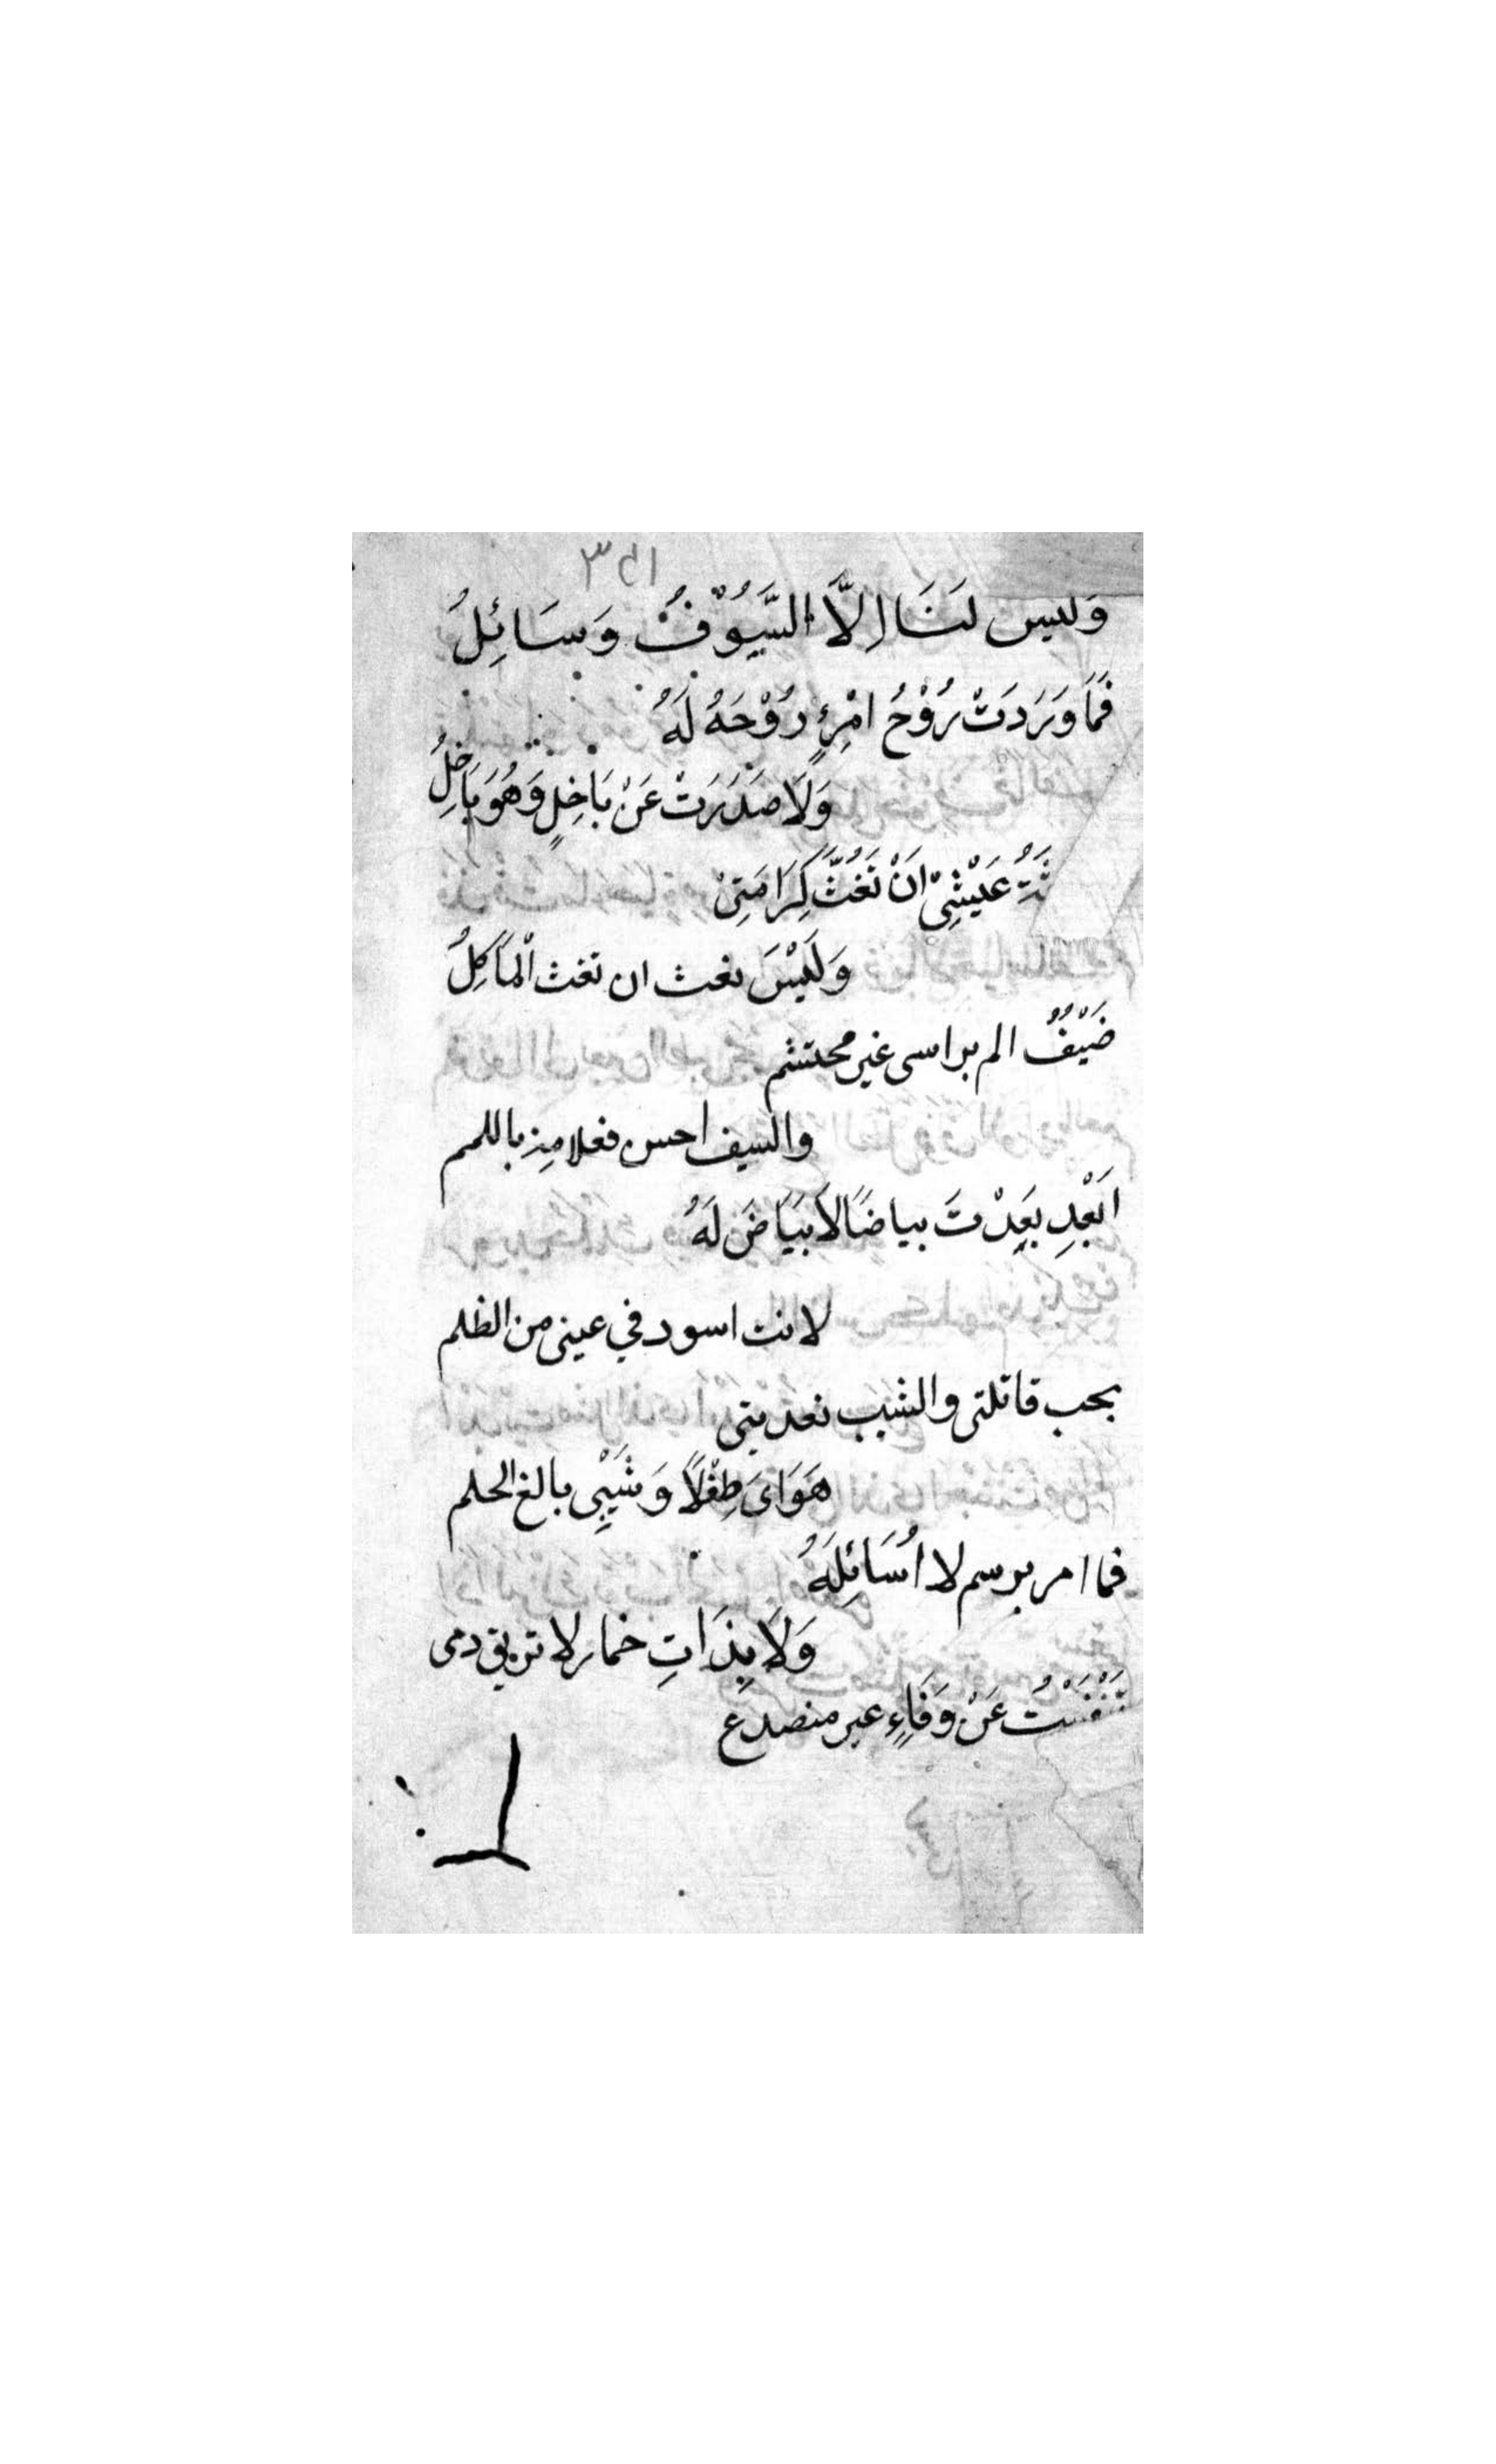 ١٥٣
وَليس لنَنَا اِلَّا السُّيُوْفُ وَسَائِلُ
فَمَا وَرَدَتْ رُوْحُ امْرِئٍ رُوْحَهُ لَهُ
وَلَا صَدَرَتْ عَنْ بَاخِلٍ وَهُوَ بَاخِلُ
عَيْشِيْ اَنْ تَغُثَّ كِرَامَتِيْ
وَلَيْسَ بغث ان تغث اْلمَاَكِلُ
ضَيْفٌ الم براسى غير محتشم
والسيف احسن فعلا منه باللمم
اَبْعِدِ بَعِدْتَ بياضًا لَا بَيَاضَ لَهُ
لانت اسود في عينى من الظلم
بحب قاتلتى والشيب تعديتى
هَوَاىَ طِفْلًا وَشَيْبِى بالغ الحلم
فما امر برسم لا اُسَائِلَهُ
وَلَا بِذَاتِ خمار لا تريق دمى
تَنَفَّسَتْ عَنْ وَفَاءٍ غير منصدع